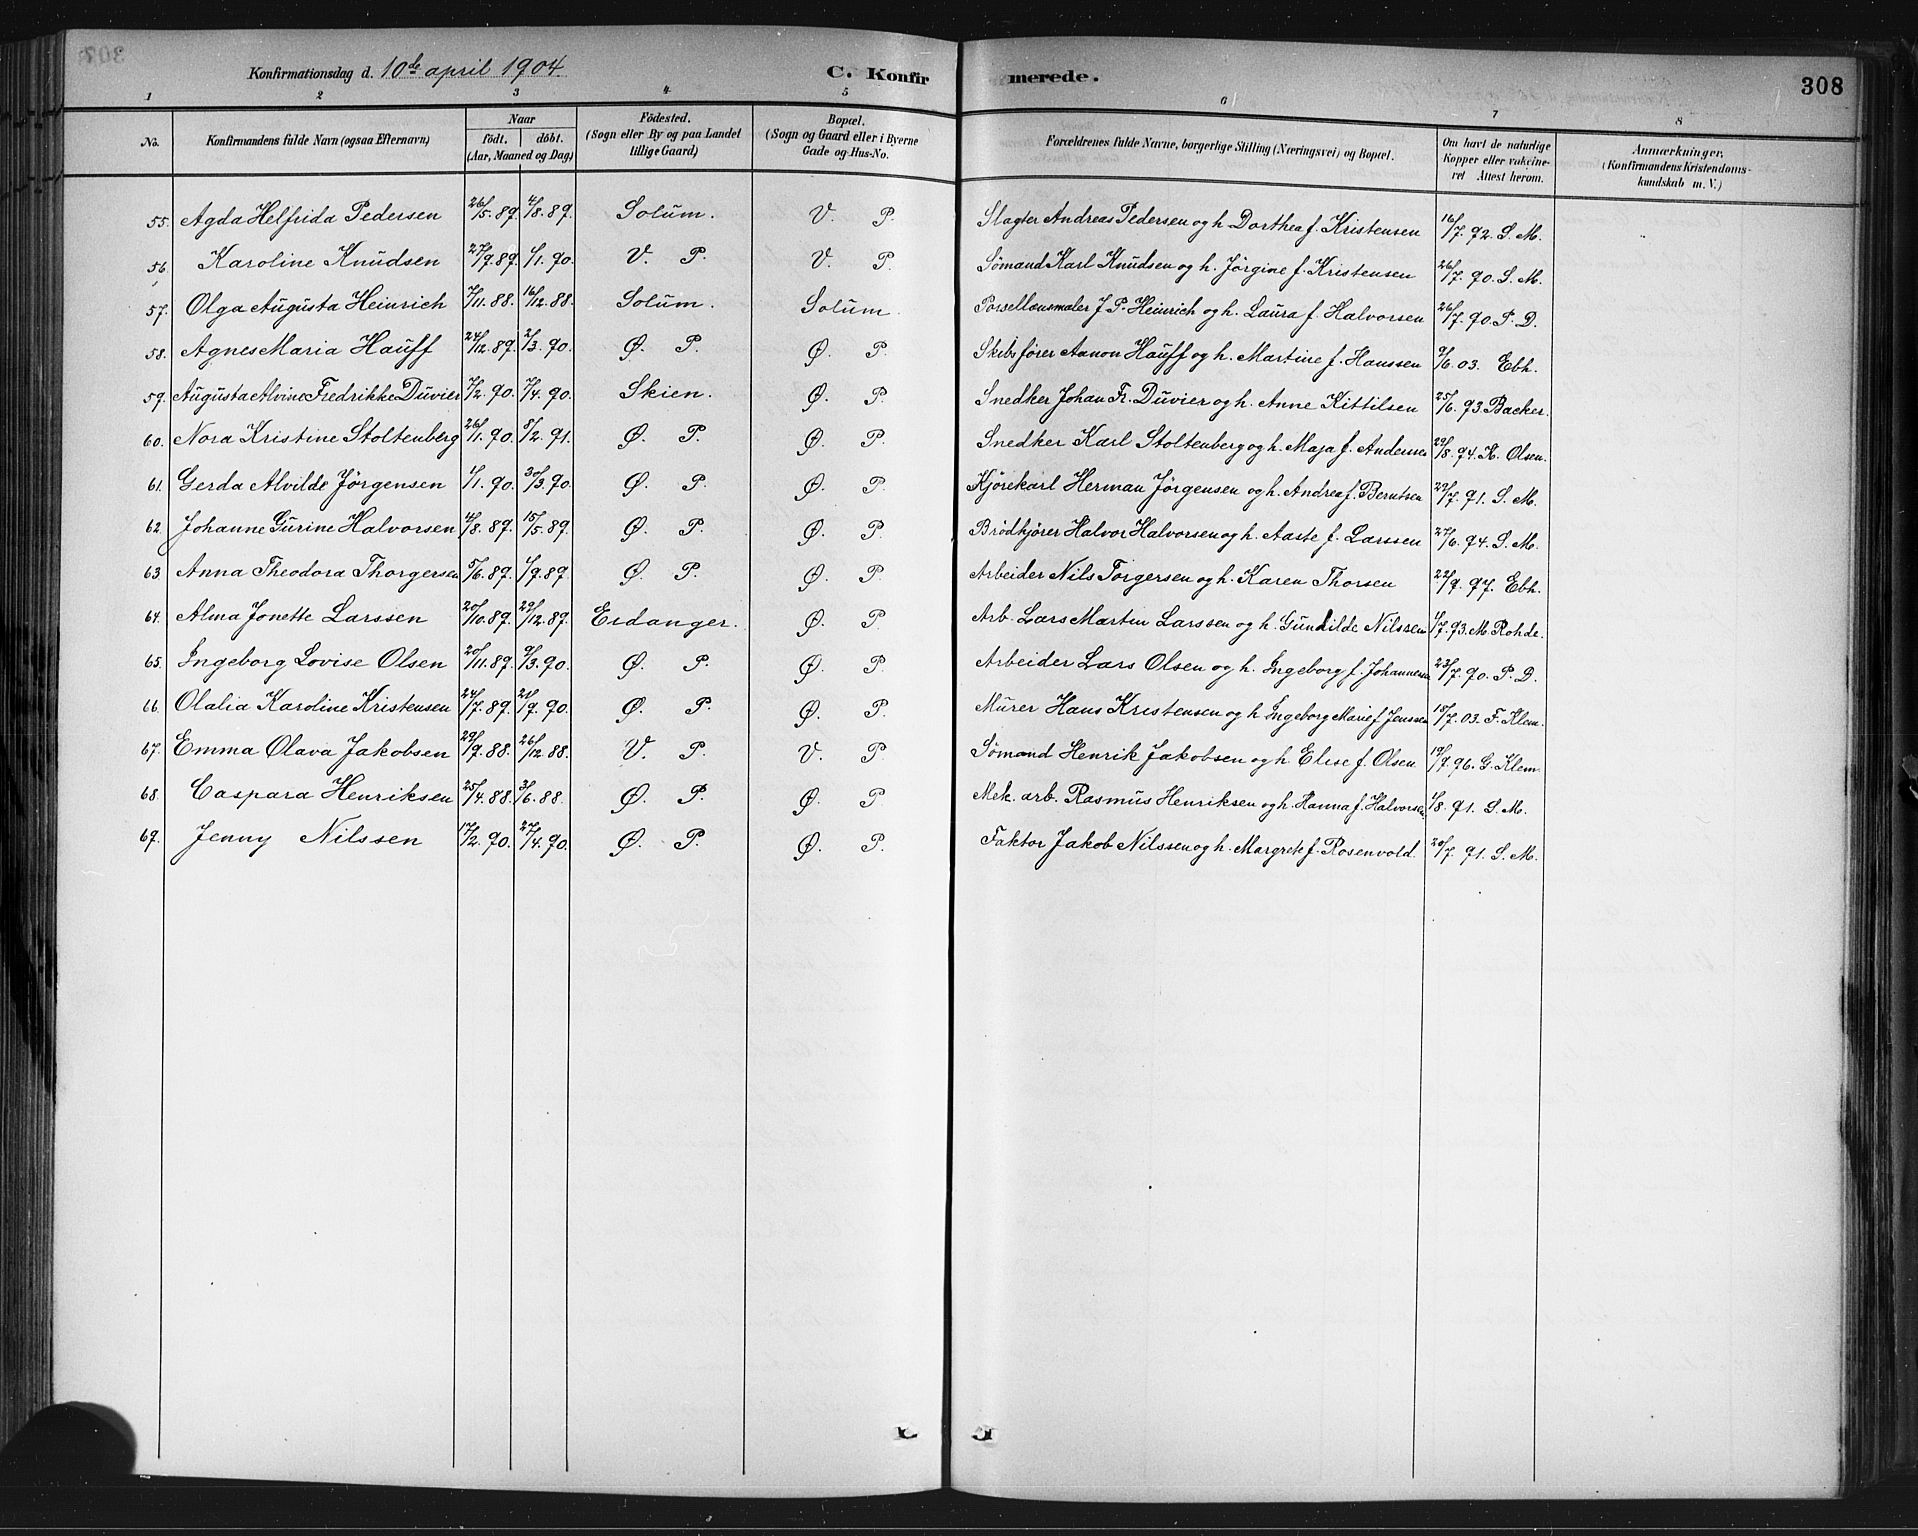 Konfirmationsdag d. 10de april 1904. C. Konfir merede. 308
1 2 3 4 5 6 7 8
No. Konfirmandens fulde Navn (ogsaa Efternavn) Naar födt. döbt. (Aar, Maaned og Dag) Födested. (Sogn eller By og paa Landet tillige Gaard) Bopæl. (Sogn og Gaard eller i Byerne Gade og Hus-No. Forældrenes fulde Navne, borgerlige Stilling (Næringsvei) og Bopæl. Om havt de naturlige Kopper eller vakcineret Attest herom. Anmærkninger. (Konfirmandens Kristendomskundskab m. V.)
55. Agda Helfrida Pedersen 26/5. 89. 4/8. 89. Solum. V. P. Slagter Andreas Pedersen og h. Dorthea f. Kristensen 16/7. 92. S. M.
56. Karoline Knudsen 27/9. 89. 1/1. 90. V. P. V. P. Sömand Karl Knudsen og h. Jörgine f. Kristensen 26/7. 90. S. M.
57. Olga Augusta Heinrich 7/11. 88. 16/12. 88. Solum. Solum. Porsellænsmaler J. P. Heinrich og h. Laura f. Halvorsen 26/7. 90. P. D.
58. Agnes Maria Hauff 24/12. 89. 2/3. 90. Ø. P. Ø. P. Skibsfører Aanon Hauff og h. Martine f. Hanssen 9/6. 03. Ebh.
59. Augusta Alvine Fredrikke Duvier 7/2. 90. 7/4. 90. Skien. Ø. P. Snedker Johan Fr. Duvier og h. Anne Kittilsen 25/6. 93. Backer.
60. Nora Kristine Stoltenberg 26/1. 90. 8/2. 91. Ø. P. Ø. P. Snedker Karl Stoltenberg og h. Maja f. Andersen 29/8. 94. K. Olsen.
61. Gerda Alvilde Jörgensen 1/1. 90. 30/3. 90. Ø. P. Ø. P. Kjörekarl Herman Jörgensen og h. Andrea f. Berntsen 29/7. 91. S. M.
62. Johanne Gurine Halvorsen 4/8. 89. 15/5. 89. Ø. P. Ø. P. Brödkjörer Halvor Halvorsen og h. Aaste f. Larssen 27/6. 94. S. M.
63. Anna Theodora Thorgersen 5/6. 89. 1/9. 89. Ø. P. Ø. P. Arbeider Nils Torgersen og h. Karen Thorsen 22/9. 97. Ebh.
64. Alma Jonette Larssen 20/10. 89. 29/12. 89. Eidanger. Ø. P. Arb. Lars Martin Larssen og h. Gunhilde Nilssen 1/7. 93. M. Rohde.
65. Ingeborg Lovise Olsen 20/11. 89. 9/3. 90. Ø. P. Ø. P. Arbeider Lars Olsen og h. Ingeborg f. Johannesen 23/7. 90. P. D.
66. Olalia Karoline Kristensen 24/7. 89. 21/9. 90. Ø. P. Ø. P. Murer Hans Kristensen og h. Ingeborg Marie f. Jenssen 18/7. 03. F. Klem.
67. Emma Olava Jakobsen 29/9. 88. 26/12. 88. V. P. V. P. Sömand Henrik Jakobsen og h. Elise f. Olsen 19/9. 96. G. Klem.
68. Caspara Henriksen 25/4. 88. 3/6. 88. Ø. P. Ø. P. Mek. arb. Rasmus Henriksen og h. Hanna f. Halvorsen 1/8. 91. S. M.
69. Jenny Nilssen 17/2. 90. 27/4. 90. Ø. P. Ø. P. Faktor Jakob Nilssen og h. Margrete f. Rosenvold. 20/7. 91. S. M.